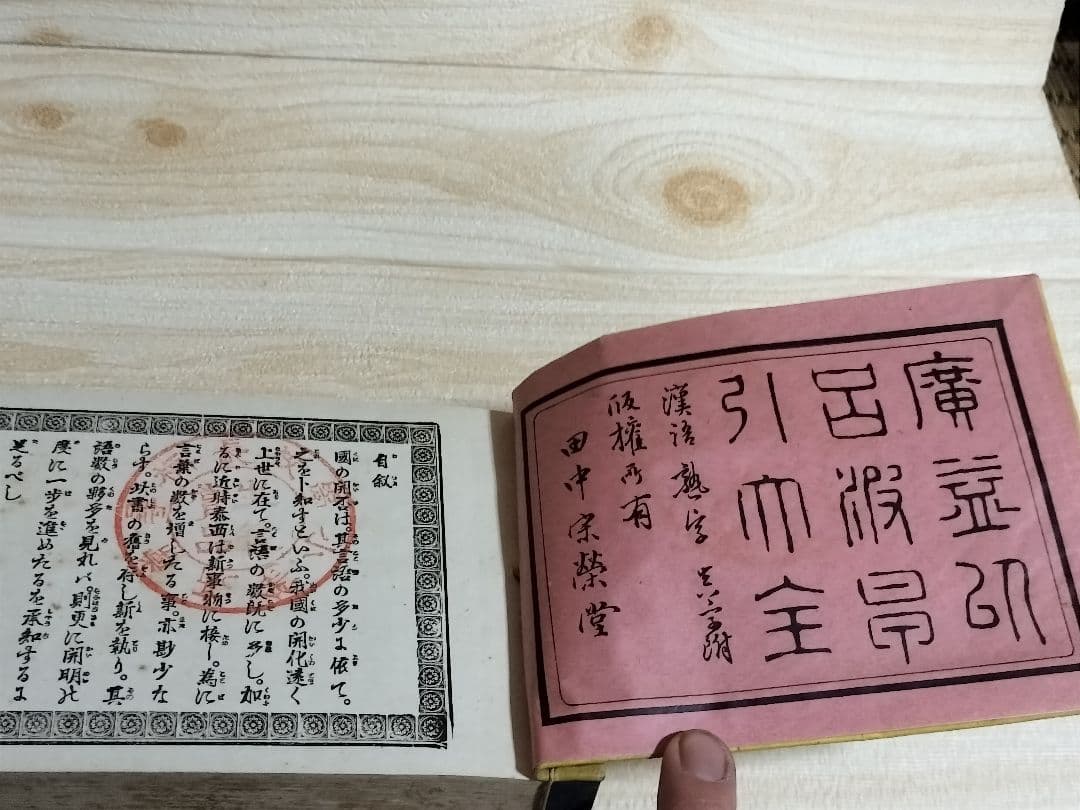 廣益以
呂波早
引大全
漢語熟字 
版權所有
田中宋榮堂
自叙
國の開否は。其言語の多少に依て。
之を卜知すといふ。我國の開化遠く
上世に在て。言語の数既に多し。加
るに近時泰西は新事物に接し。為に
言葉の数を増したる事。亦尠少な
らす。此書の舊を存し新を執り。其
語数の夥多を見れハ。則更に開明の
度に一歩を進めたるを承知するに
足るべし